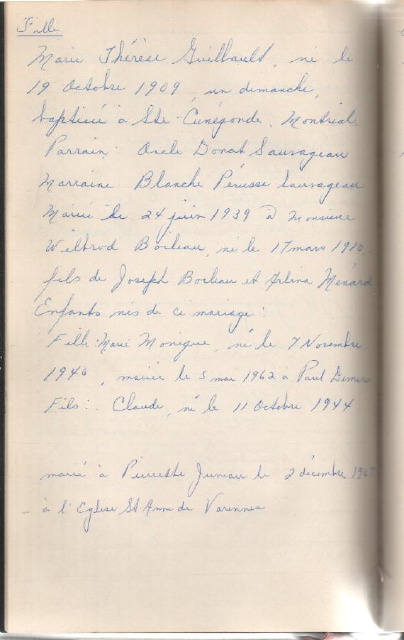 Fille
Marie Thérèse Guilbault, né le
19 Octobre 1909, un dimanche,
baptisée à Ste-Cunégonde, Montréal
Parrain: Donat Sauvageau
Marraine Blanche Sauvageau
Mariée le 24 juin 1939 à Monsieur
Wilbrod Boileau, né le 17 mars
fils de Joseph Boileau et Ménard
Enfants nés de ce mariage:
Fille: Marie Monique, né le 7 Novembre
1940, mariée le 5 mai 1962 à Paul
Fils: Claude, né le 11 Octobre 1944
marié à Pierrette Juneau le 2 décembre
à l'Eglise St Anne de Varennes